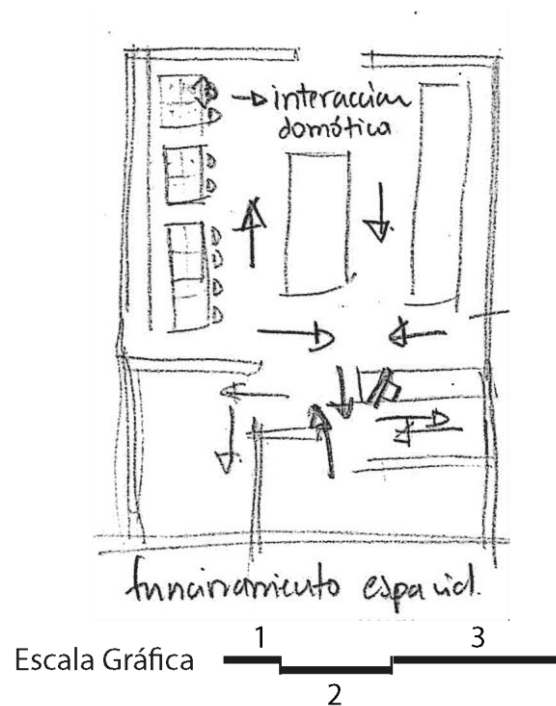 → interaccion
domótica
funcionamiento espacial.
1 3
Escala Gráfica
2